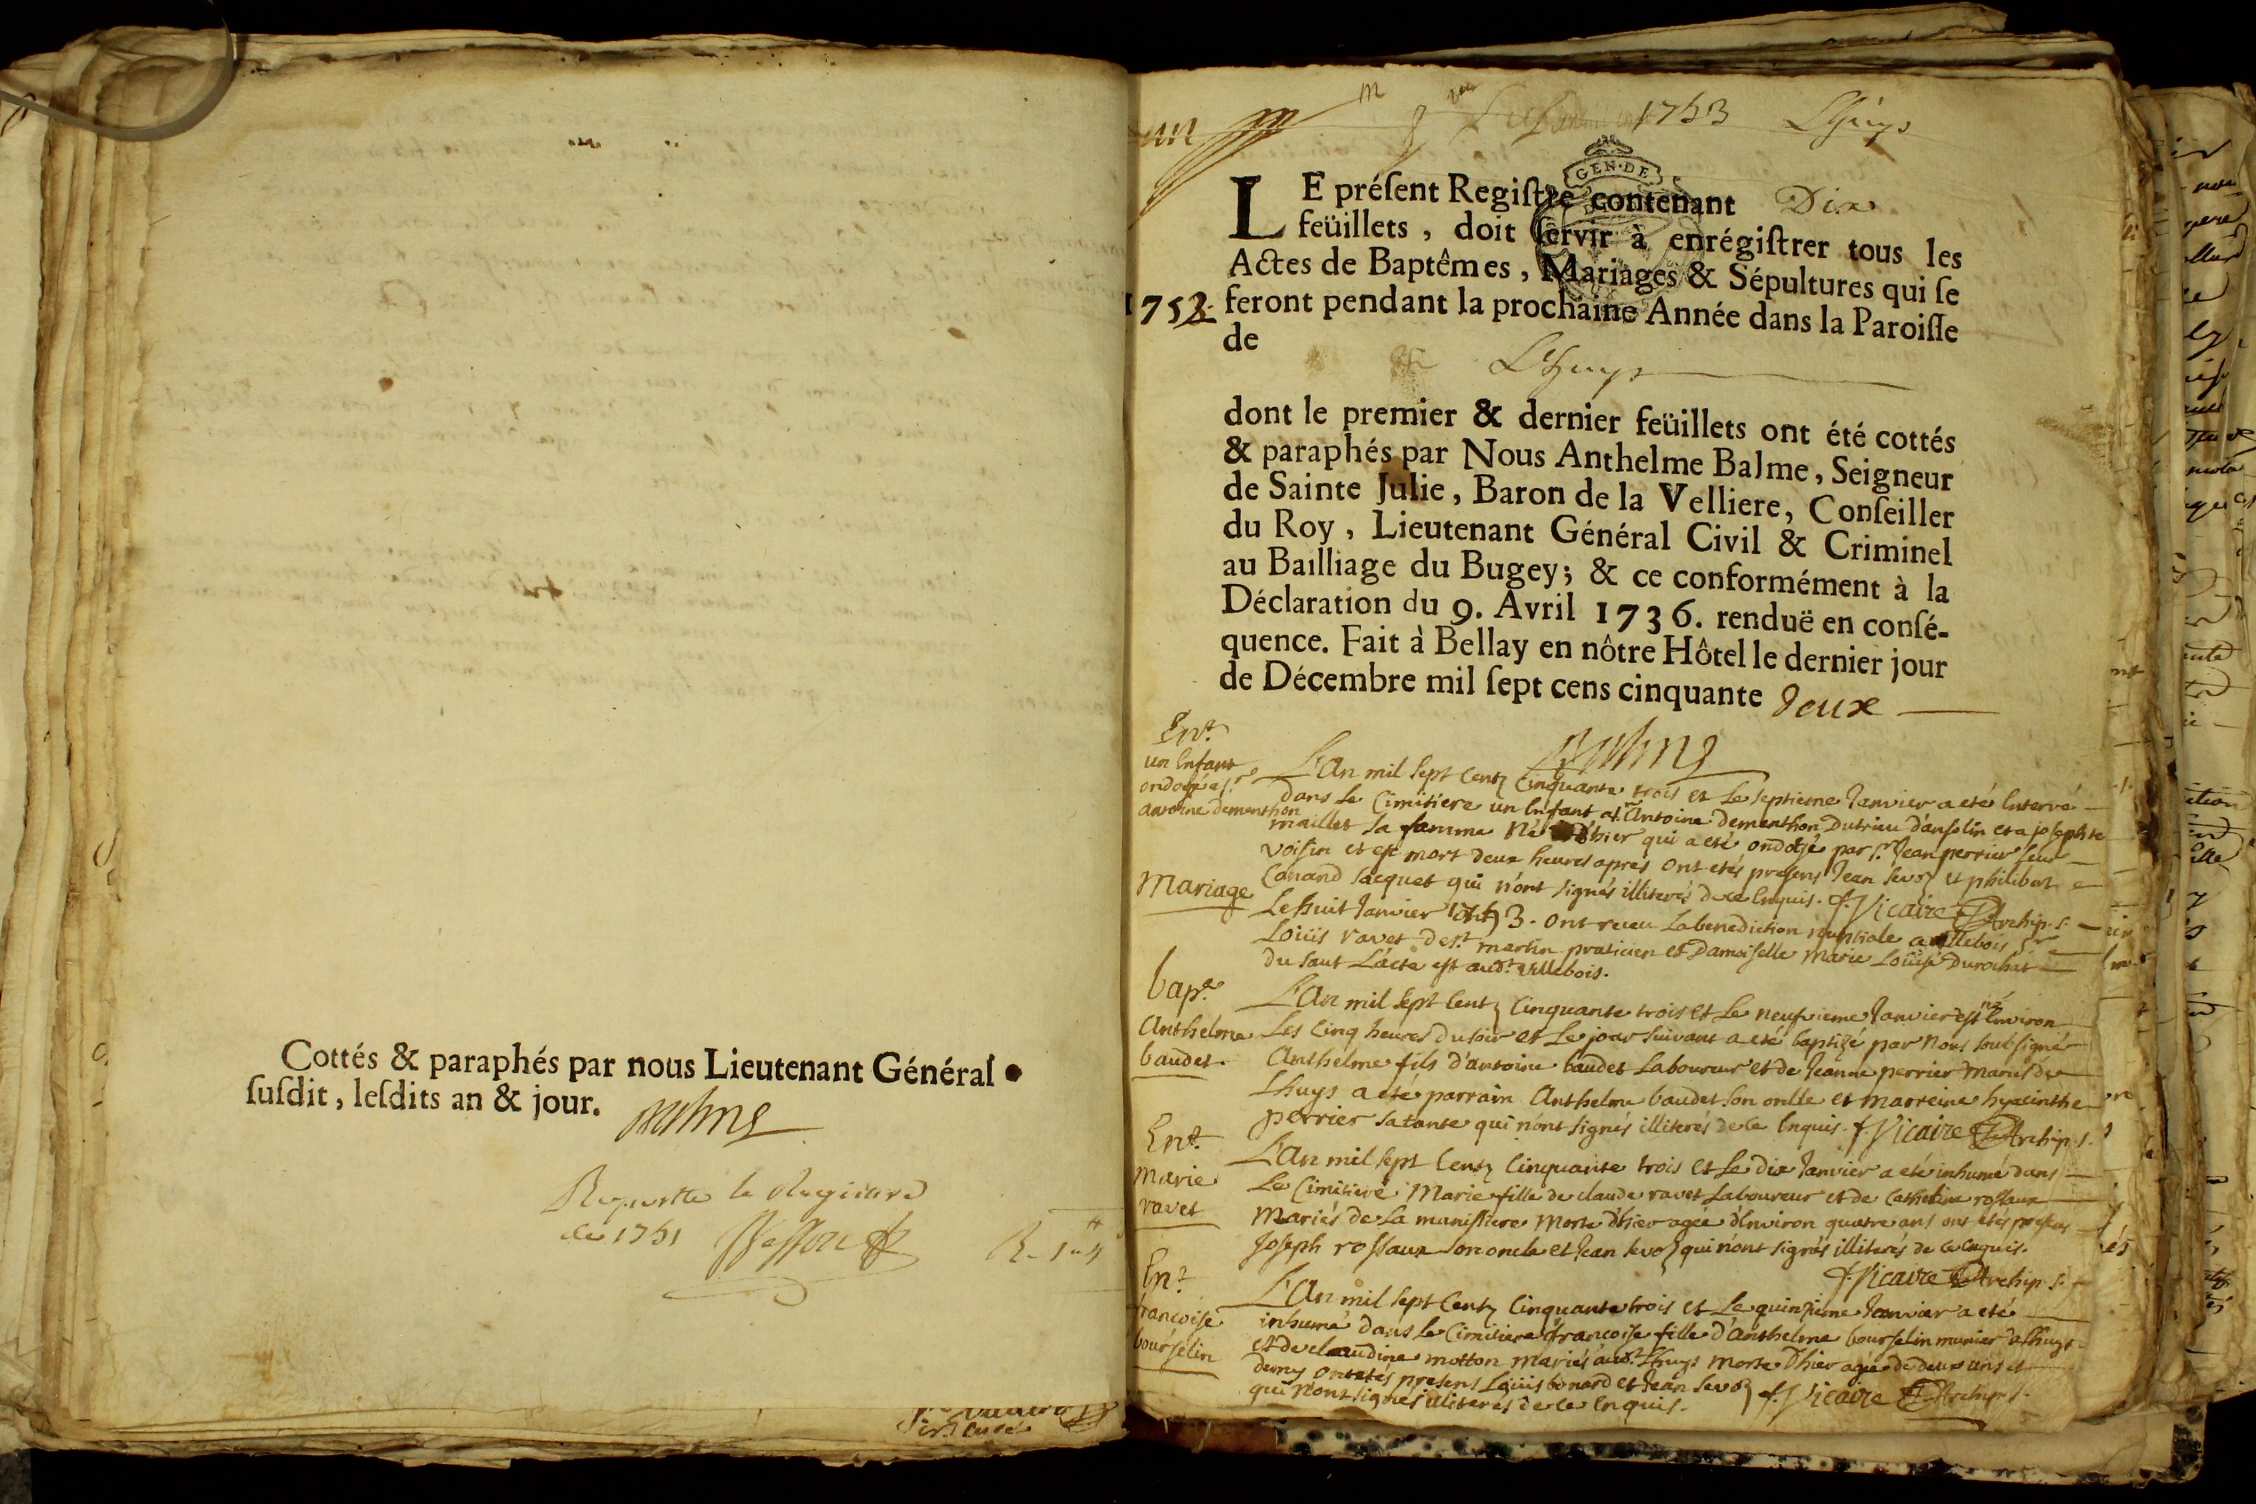 Cottés & paraphés par nous Lieutenant Général
ſuſdit, leſdits an & jour.
de 1751
un
1753 Lhuys
GEN·DE
LE préſent Regiſtre contenant Dix
feüillets, doit ſervir à enrégiſtrer tous les
Actes de Baptêmes, Mariages & Sépultures qui ſe
1753 feront pendant la prochaine Année dans la Paroiſſe
de
Lhuys
dont le premier & dernier feüillets ont été cottés
& paraphés par Nous Anthelme Balme, Seigneur
de Sainte Julie, Baron de la Velliere, Conſeiller
du Roy, Lieutenant Général Civil & Criminel
au Bailliage du Bugey; & ce conformément à la
Déclaration du 9. Avril 1736. renduë en conſé-
quence. Fait à Bellay en nôtre Hôtel le dernier jour
de Décembre mil ſept cens cinquante deux
Ent.
un Enfant
ondoyé a s.r
antoine dementhon
L'An mil sept Centz Cinquante trois et Le septieme Janvier a eté Enterré
dans Le Cimitiere un Enfant a s.r Antoine dementhon Dutrieu d'anselin et a josephte
maillet sa famme Né d'hier qui a eté ondoyé par s.r Jean perrier leur
voisin et est mort deux heures aprés ont etés presens Jean sevoz et philibert
Canard Jacquet qui n'ont signés illiterés de ce Enquis. f. Vicaire Archip. s.
Mariage
Le huit Janvier 1753. ont receu La benediction nuptiale a villebois s.r
Loüis ravet de s.t martin praticien et Damoiselle Marie Loüise Durochat
du saut L'acte est aud.t villebois.
bap.e
Anthelme
baudet
L'An mil sept Centz Cinquante trois et Le neufvieme Janvier est né Environ
Les Cinq heures du soir et Le jour suivant a eté baptizé par Nous soubsigné
Anthelme fils d'antoine baudet Laboureur et de Jeanne perrier mariés de
Lhuys a eté parrain Anthelme baudet son oncle et marreine hyacinthe
perrier sa tante qui n'ont signés illiterés de ce Enquis. f. Vicaire Archip. s.
Ent.
Marie
ravet
L'An mil sept Centz Cinquante trois et Le dix Janvier a eté inhumé dans
Le Cimitiere Marie fille de claude ravet Laboureur et de Catherine rossaux
Mariés de La manissiere Morte d'hier agée d'Environ quatre ans ont etés presens
Joseph rossaux son oncle et Jean sevoz qui n'ont signés illiterés de ce Enquis.
f. Vicaire Archip. s.
Ent.
francoise
bourselin
L'An mil sept Centz Cinquante trois et Le quinzieme Janvier a eté
inhumé dans Le Cimitiere francoise fille d'Anthelme bourselin munier a Lhuys
et de claudine motton mariés aud.t Lhuys morte d'hier agée de deux ans et
demy ont etés presens Loüis bonard et Jean sevoz f. Vicaire Archip. s.
qui n'ont signés illiterés de ce Enquis.